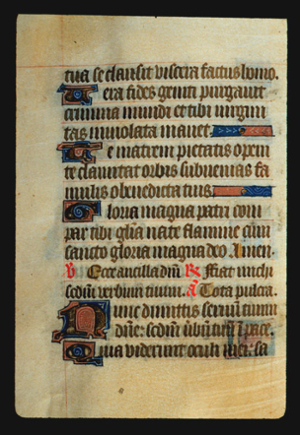 tua se clausit viscera factus homo.
Vera fides geniti purgavit
crimina mundi et tibi virgini
tas inviolata manet.
Te matrem pietatis opem
te clamitat orbis subvenias fa
mulis o benedicta tuis.
Gloria magna patri com
par tibi gl̄ia nate flamine cum
sancto gloria magna deo Amen.
V̄ Ecce ancilla dn̄i R̄ Fiat michi
scdm̄ verbum tuum. a̅ Tota pulcra.
Nunc dimittis servum tuum
dn̄e: scdm̄ v̄bū tuū ī pace.
Quia viderunt oculi mei: sa